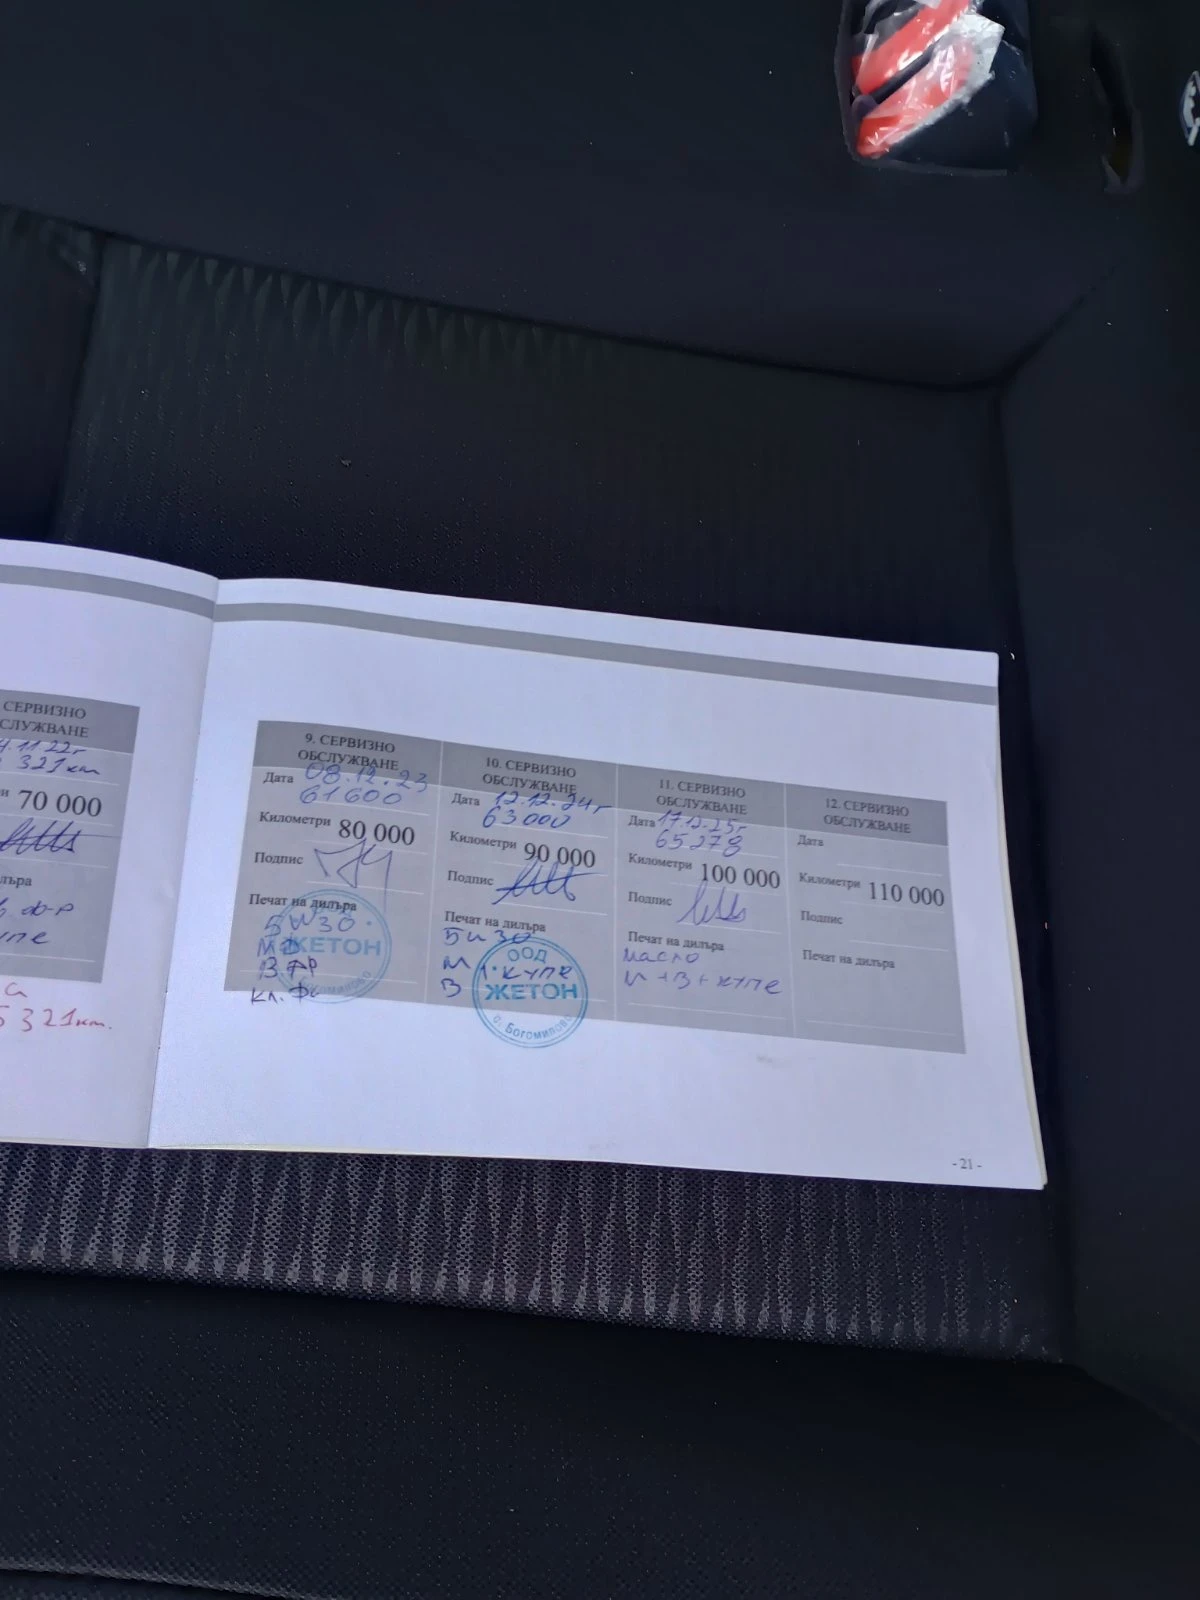 СЕРВИЗНО
СЛУЖВАНЕ
.11.22г
321км
70 000
купе
5321км.
9. СЕРВИЗНО
ОБСЛУЖВАНЕ
Дата 08.12.23
61600
Километри 80 000
Подпис
Печат на дилъра
5W30
ЖЕТОН
В.ФР
кл. ф
10. СЕРВИЗНО
ОБСЛУЖВАНЕ
Дата 12.12.24г
63000
Километри 90 000
Подпис
Печат на дилъра
5W30
М + купе
В
ООД
ЖЕТОН
с. Богомилово
11. СЕРВИЗНО
ОБСЛУЖВАНЕ
Дата 17.12.25г
65278
Километри 100 000
Подпис
Печат на дилъра
масло
М + В + купе
12. СЕРВИЗНО
ОБСЛУЖВАНЕ
Дата
Километри 110 000
Подпис
Печат на дилъра
- 21 -